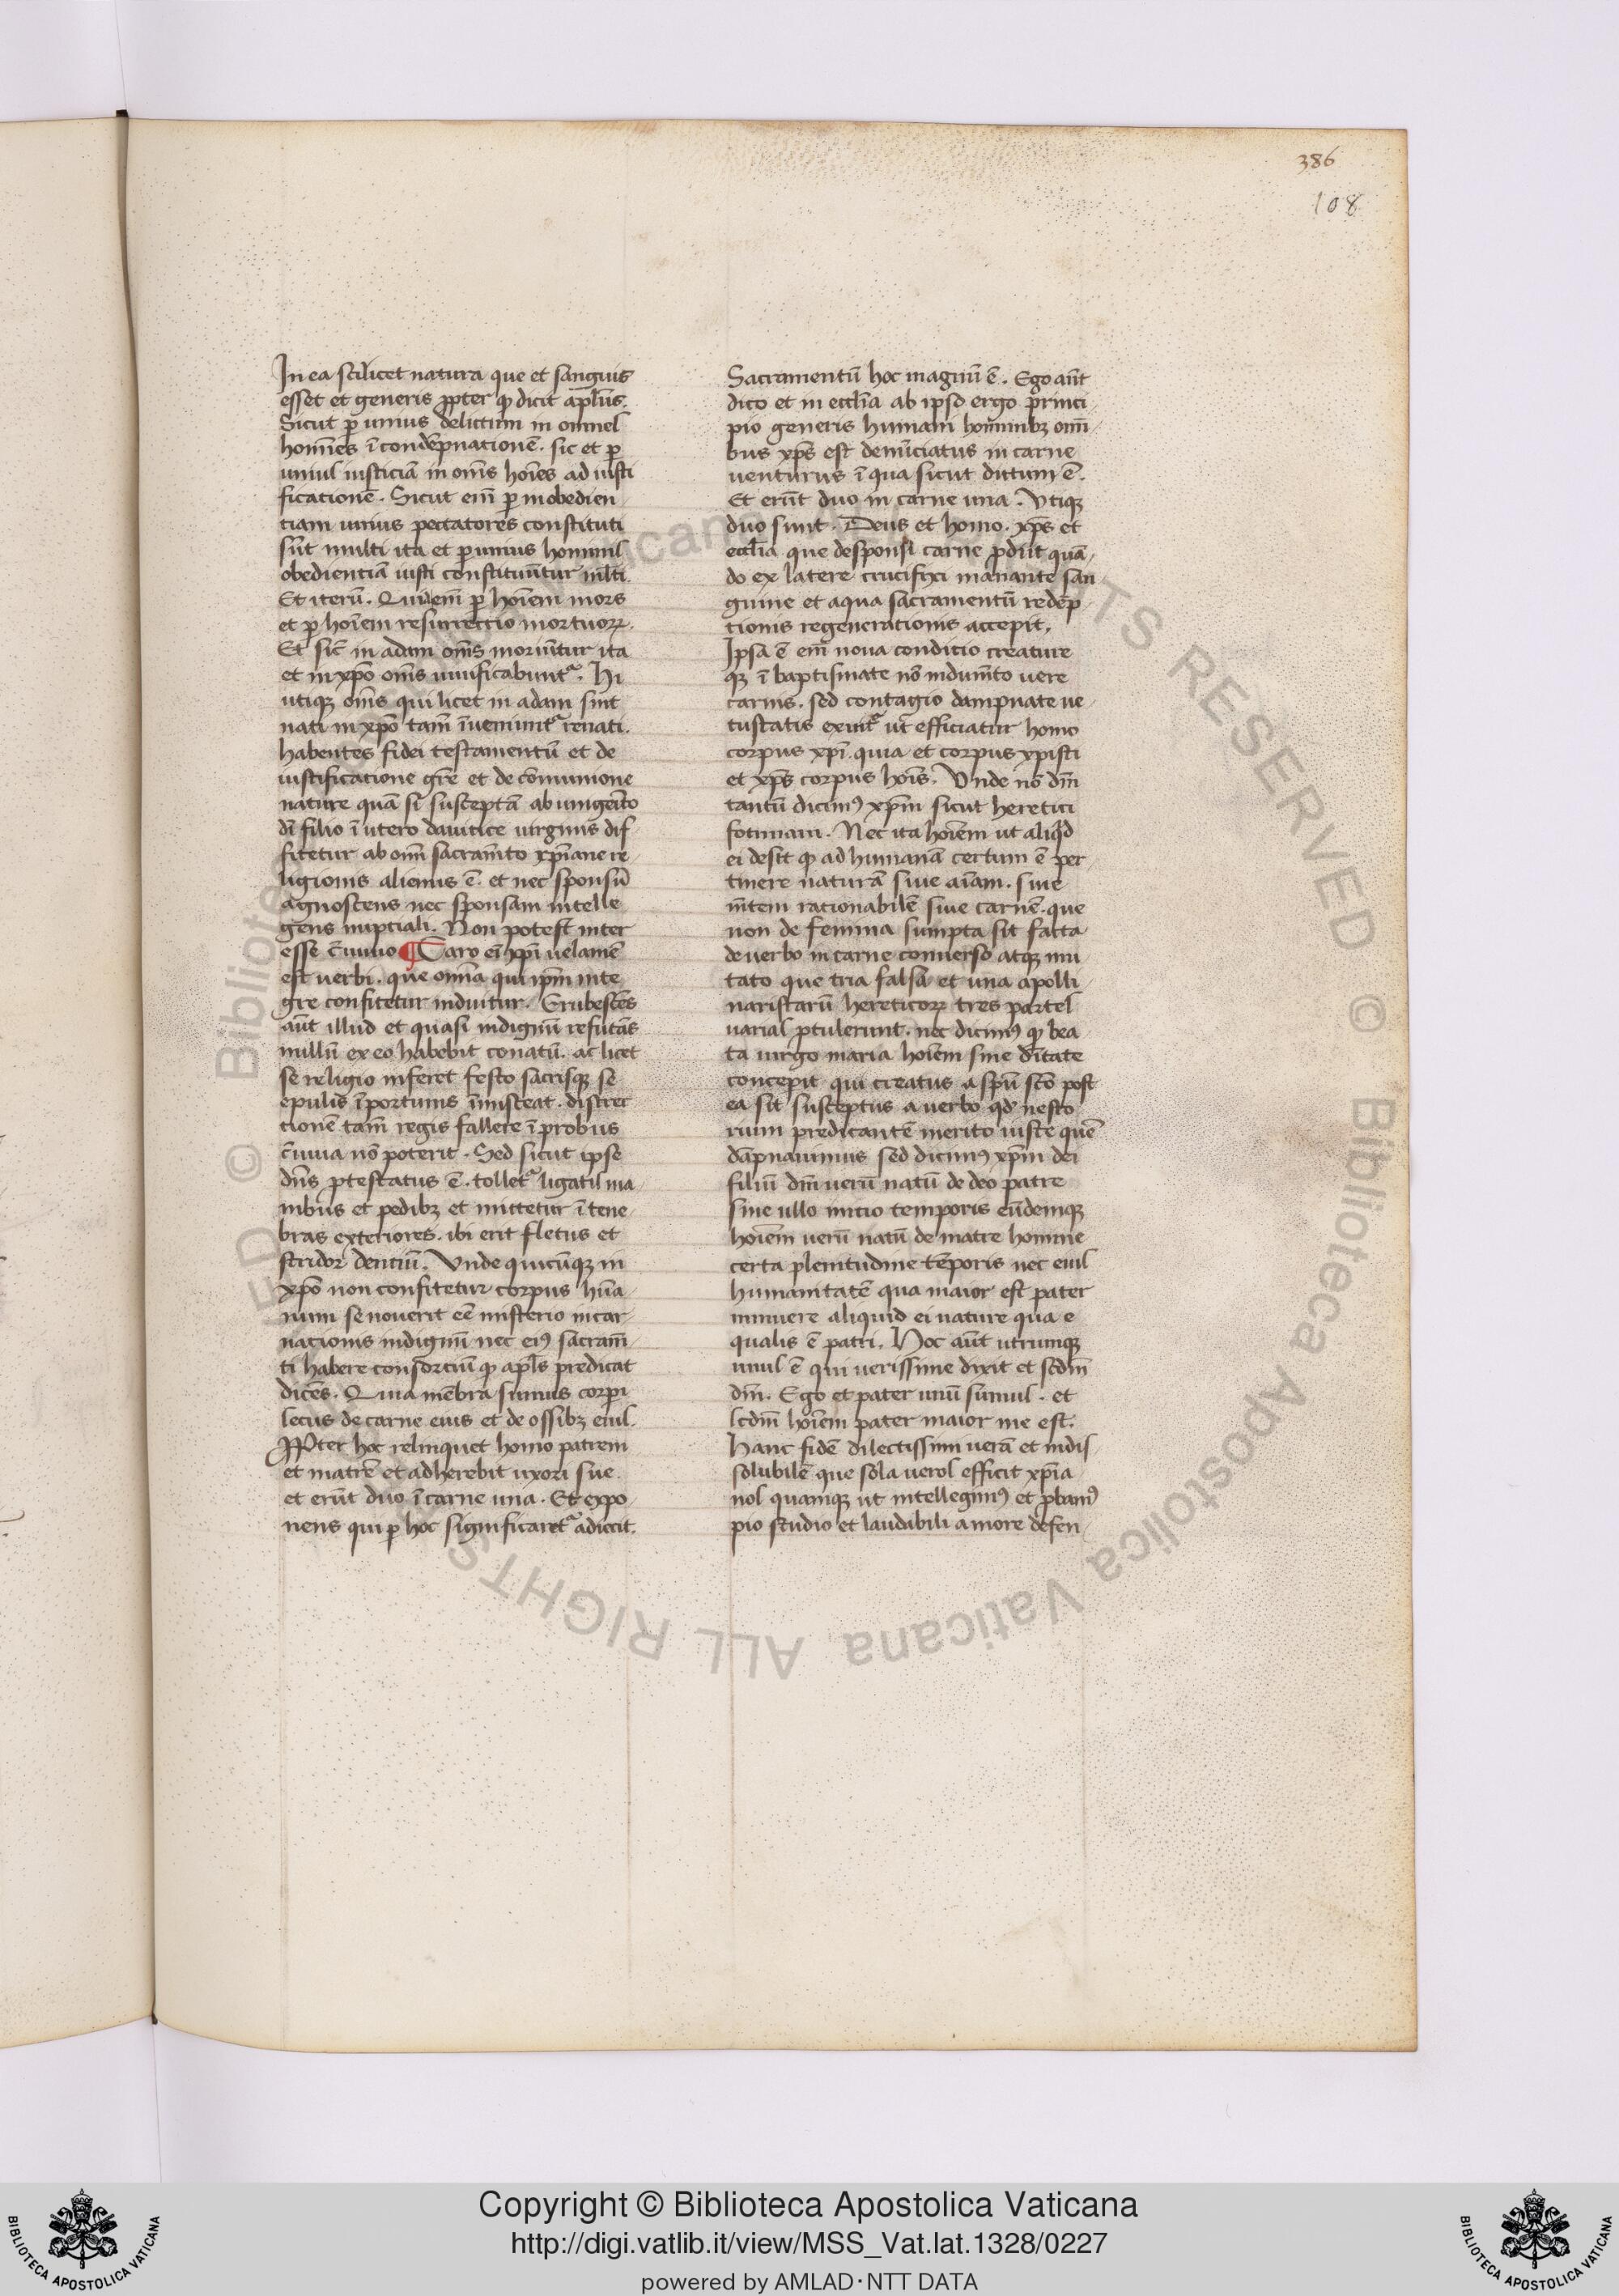 386
108
In ea scilicet natura que et sanguis
esset et generis ꝓpter qͥ dicit apl̄us.
Sicut ꝑ unius delictum in omnes
homīes ī condēpnationē. sic et ꝑ
unius iusticiā in om̄s hoīes ad iusti
ficationē. Sicut em̄ ꝑ inobedien
tiam unius peccatores constituti
sūt multi ita et ꝑ unius hominis
obedientiā iusti constituūtur ml̄ti.
Et iterū. Quiem̄ ꝑ hoīem mors
et ꝑ hoīem resurrectio mortuoꝝ.
Et sic̄ in adam om̄s moriūtur ita
et in xp̄o om̄s uiuificabuntᷣ. Hi
utiqꝫ om̄s qui licet in adam sint
nati in xp̄o tam̄ īueniuntᷣ renati.
habentes fidei testamentū et de
iustificatione gr̄e et de cōmunione
nature quā si susceptā ab unigeīto
dī filio ī utero dauitice uirginis dif
fitetur ab om̄i sacram̄to xp̄iane re
ligionis alienus ē. et nec sponsū
agnoscens nec sponsam intelle
gens nuptiali. Non potest inter
esse c̄uiuio ¶ Caro ei xp̄i uelamē
est uerbi. que om̄ia qui ip̄m inte
gre confitetur induitur. Erubescēs
aūt illud et quasi indignū refutās
nullū ex eo habebit conatū. ac licet
se religio inferet festo sacrisqꝫ se
epulis īportunis īmisceat. discrec
tionē tam̄ regis fallere īprobus
c̄uiua nō poterit. Sed sicut ipse
dn̄s ꝓtestatus ē. tolletᷣ ligatis ma
nibus et pedibꝫ et mittetur ī tene
bras exteriores. ibi erit fletus et
stridor dentiū. Vnde quicūqꝫ in
xp̄o non confitetur corpus hūa
num se nouerit eē misterio incar
nationis indignū nec eiꝰ sacram̄
ti habere consortiū qͥ apl̄s predicat
dicēs. Quia mēbra sumus corpi
lecus de carne eius et de ossibꝫ eius.
Ꝓpter hoc relinquet homo patrem
et matrē et adherebit uxori sue.
et erūt duo ī carne una. Et expo
nens qui ꝑ hoc significaretᷣ adiecit.
Sacramentū hoc magnū ē. Ego aūt
dico et in eccl̄ia ab ipso ergo princi
pio generis humani hominibꝫ om̄i
bus xp̄s est denūciatus in carne
uenturus ī qua sicut dictum ē.
Et erūt duo in carne una. Vtiqꝫ
duo sunt. Deus et homo. xp̄s et
eccl̄ia que desponsi carne ꝓdiit quā
do ex latere crucifixi manante san
guine et aqua sacramentū redēp
tionis regenerationis accepit.
Ipsa ē em̄ noua conditio creature
qꝫ ī baptismate nō indum̄to uere
carnis. sed contagio dampnate ue
tustatis exuitᷣ ut efficiatur homo
corpus xp̄i. quia et corpus xpisti
et xp̄s corpus hoīs. Vnde nō dm̄
tantū dicimꝰ xp̄m sicut heretici
fotiniani. Nec ita hoīem ut aliqͥd
ei desit qͥ ad humanā certum ē per
tinere naturā siue aīam. siue
m̄tem rationabilē siue carnē. que
non de femina sumpta sit facta
de uerbo in carne conuerso atqꝫ mu
tato que tria falsa et una apolli
naristarū hereticoꝝ tres partes
uarias ꝓtulerunt. nec dicimꝰ qͥ bea
ta uirgo maria hoīem sine dītate
concepit qui creatus a spū sc̄o post
ea sit susceptus a uerbo qd̓ nesto
rium predicantē merito iuste quē
dāpnauimus sed dicimꝰ xp̄m dei
filiū dm̄ uerū natū de deo patre
sine ullo initio temporis eūdemqꝫ
hoīem uerū natū de matre homine
certa plenitudine tēporis nec eius
humanitatē qua maior est pater
minuere aliquid ei nature qua e
qualis ē patri. Hoc aūt utrumqꝫ
unus ē qui uerissime dixit et scdm̄
dm̄. Ego et pater unū sumus. et
scdm̄ hoīem pater maior me est.
Hanc fidē dilectissimi uerā et indis
solubilē que sola ueros efficit xp̄ia
nos quamqꝫ ut intellegimꝰ et ꝓbamꝰ
pio studio et laudabili amore defen
Copyright © Biblioteca Apostolica Vaticana
http://digi.vatlib.it/view/MSS_Vat.lat.1328/0227
powered by AMLAD·NTT DATA
BIBLIOTECA APOSTOLICA VATICANA
BIBLIOTECA APOSTOLICA VATICANA